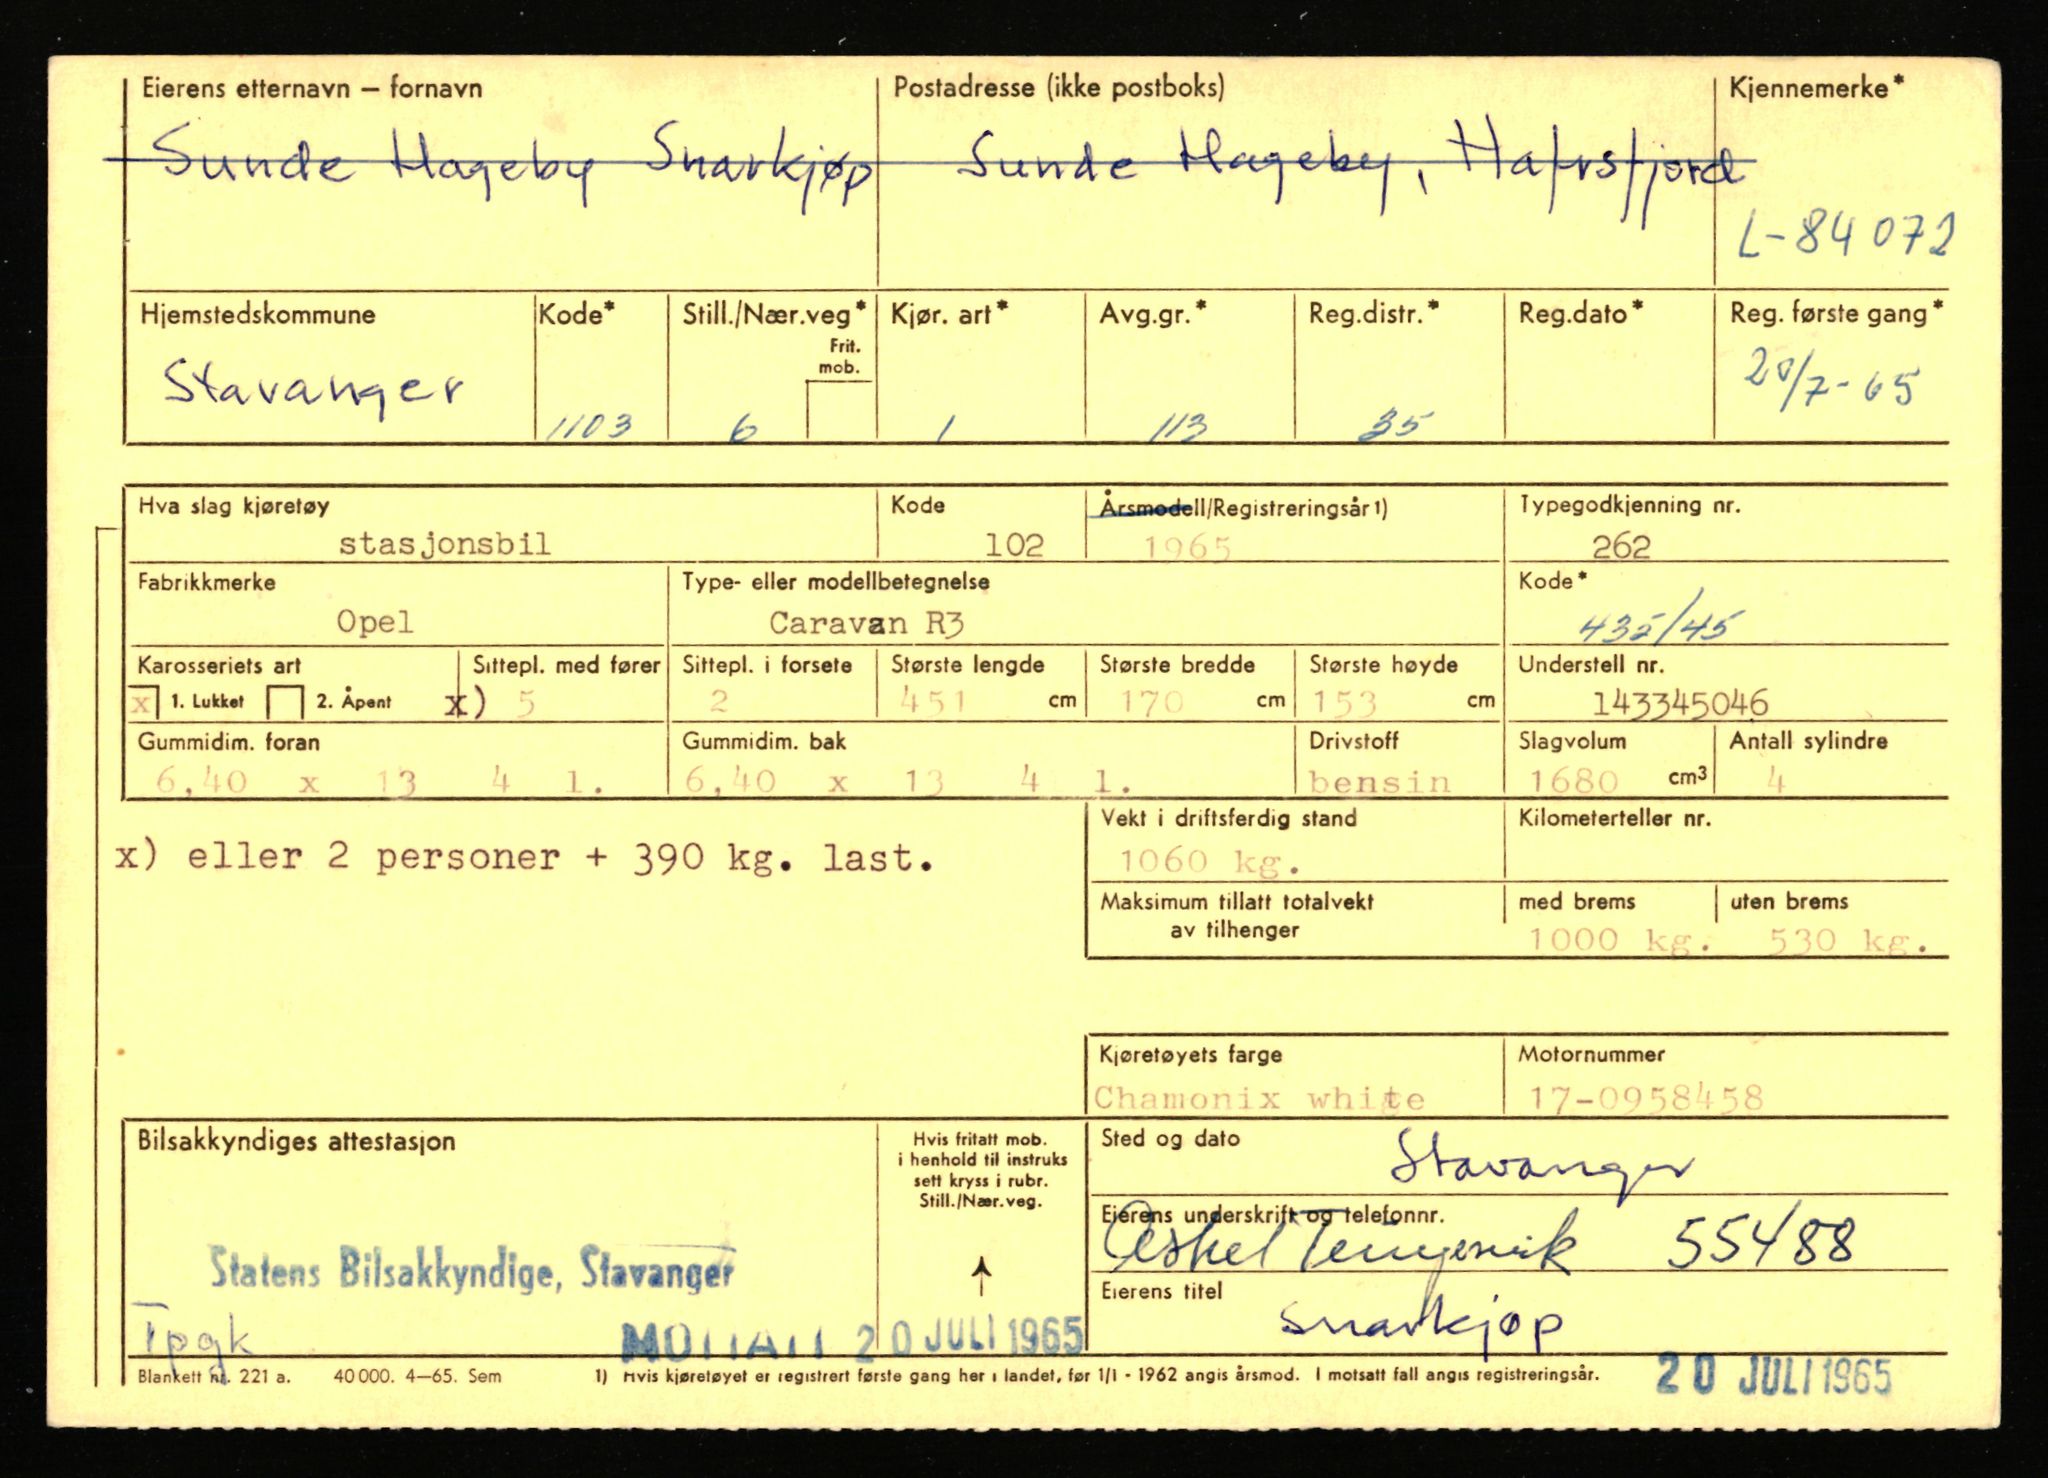 Eierens etternavn – fornavn Postadresse (ikke postboks) Kjennemerke*
Sunde Hageby Snarkjøp Sunde Hageby, Hafrsfjord
L-84072
Hjemstedskommune Kode* Still./Nær.veg* Kjør. art* Avg.gr.* Reg.distr.* Reg.dato* Reg. første gang*
Frit.
mob.
Stavanger 1103 6 1 113 35 20/7-65
Hva slag kjøretøy Kode Årsmodell/Registreringsår 1) Typegodkjenning nr.
stasjonsbil 102 1965 262
Fabrikkmerke Type- eller modellbetegnelse Kode*
Opel Caravan R3 435/45
Karosseriets art Sittepl. med fører Sittepl. i forsete Største lengde Største bredde Største høyde Understell nr.
x 1. Lukket 2. Åpent x) 5 2 451 cm 170 cm 153 cm 143345046
Gummidim. foran Gummidim. bak Drivstoff Slagvolum Antall sylindre
6,40 x 13 4 l. 6,40 x 13 4 l. bensin 1680 cm3 4
Vekt i driftsferdig stand Kilometerteller nr.
x) eller 2 personer + 390 kg. last. 1060 kg.
Maksimum tillatt totalvekt med brems uten brems
av tilhenger 1000 kg. 530 kg.
Kjøretøyets farge Motornummer
Chamonix white 17-0958458
Bilsakkyndiges attestasjon Hvis fritatt mob. Sted og dato
i henhold til instruks
sett kryss i rubr.
Still./Nær.veg.
Stavanger
Eierens underskrift og telefonnr.
55488
Statens Bilsakkyndige, Stavanger
Eierens titel
Snarkjøp
Tpgk
MOTTATT 20 JULI 1965
Blankett nr. 221 a. 40 000. 4–65. Sem 1) Hvis kjøretøyet er registrert første gang her i landet, før 1/1 - 1962 angis årsmod. I motsatt fall angis registreringsår.
20 JULI 1965